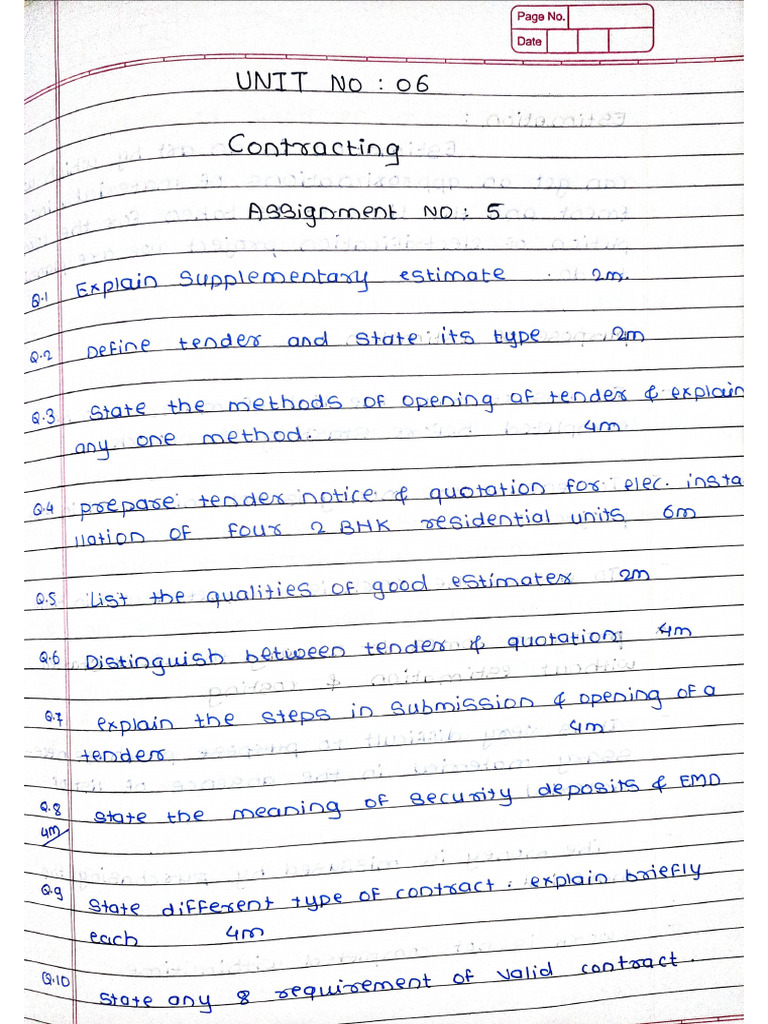 Page No.
Date
UNIT NO : 06
Contracting
Assignment NO: 5
Q.1 Explain Supplementary estimate. 2m.
Q.2 Define tender and state its type 2m
Q.3 State the methods of opening of tender & explain
any one method. 4m
Q.4 prepare tender notice & quotation for elec. insta
llation of four 2 BHK residential units 6m
Q.5 List the qualities of good estimater 2m
Q.6 Distinguish between tender & quotation 4m
Q.7 explain the steps in submission & opening of a
tender 4m
Q.8 State the meaning of security deposits & EMD
4m
Q.9 State different type of contract. explain briefly
each 4m
Q.10 State any 8 requirement of valid contract.